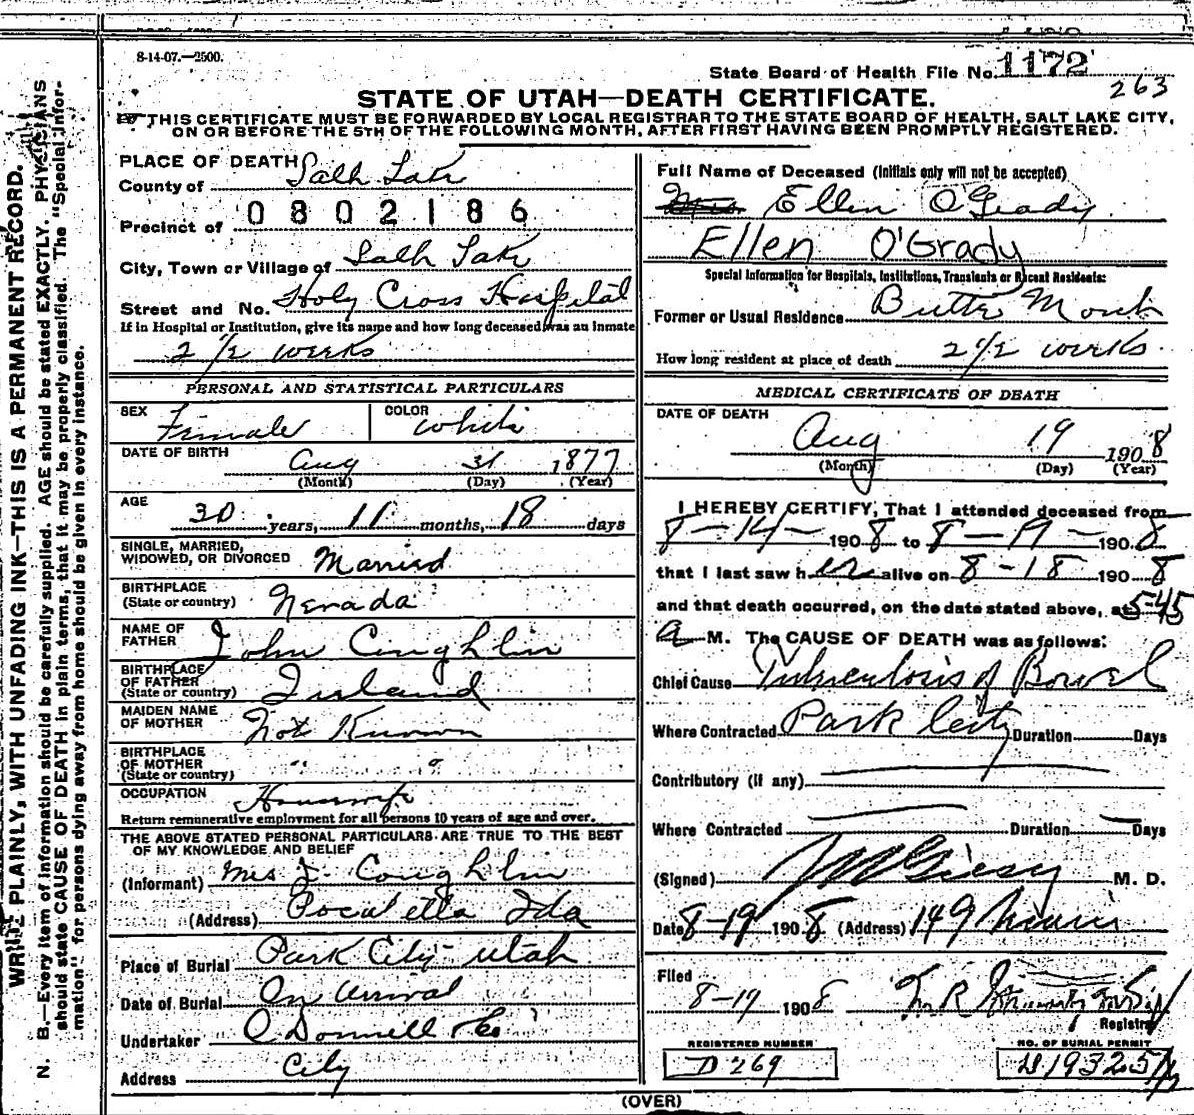 8-14-07.—2500.
State Board of Health File No. 1172
263
STATE OF UTAH—DEATH CERTIFICATE.
THIS CERTIFICATE MUST BE FORWARDED BY LOCAL REGISTRAR TO THE STATE BOARD OF HEALTH, SALT LAKE CITY,
ON OR BEFORE THE 5TH OF THE FOLLOWING MONTH, AFTER FIRST HAVING BEEN PROMPTLY REGISTERED.
PLACE OF DEATH
County of Salt Lake
Precinct of 0802186
City, Town or Village of Salt Lake
Street and No. Holy Cross Hospital
If in Hospital or Institution, give its name and how long deceased was an inmate
2 1/2 weeks
PERSONAL AND STATISTICAL PARTICULARS
SEX Female COLOR White
DATE OF BIRTH Aug 31 1877
(Month) (Day) (Year)
AGE 30 years, 11 months, 18 days
SINGLE, MARRIED,
WIDOWED, OR DIVORCED Married
BIRTHPLACE
(State or country) Nevada
NAME OF
FATHER John Coughlin
BIRTHPLACE
OF FATHER
(State or country) Ireland
MAIDEN NAME
OF MOTHER Not Known
BIRTHPLACE
OF MOTHER
(State or country) " "
OCCUPATION Housewife
Return remunerative employment for all persons 10 years of age and over.
THE ABOVE STATED PERSONAL PARTICULARS ARE TRUE TO THE BEST
OF MY KNOWLEDGE AND BELIEF
(Informant) Mrs J. Coughlin
(Address) Pocatello Ida
Place of Burial Park City Utah
Date of Burial On arrival
Undertaker O'Donnell & Co
Address City
Full Name of Deceased (Initials only will not be accepted)
Mrs. Ellen O'Grady
Ellen O'Grady
Special Information for Hospitals, Institutions, Transients or Recent Residents:
Former or Usual Residence Butte Mont
How long resident at place of death 2 1/2 weeks
MEDICAL CERTIFICATE OF DEATH
DATE OF DEATH
Aug 19 1908
(Month) (Day) (Year)
I HEREBY CERTIFY, That I attended deceased from
8-14- 1908 to 8-19- 1908
that I last saw her alive on 8-18 1908
and that death occurred, on the date stated above, at 5-45
a M. The CAUSE OF DEATH was as follows:
Chief Cause Tuberculosis of Bowel
Where Contracted Park City Duration Days
Contributory (if any)
Where Contracted Duration Days
(Signed) M. D.
Date 8-19 1908 (Address) 149 Main
Filed
8-19 1908
Registrar
REGISTERED NUMBER
D 269
NO. OF BURIAL PERMIT
(OVER)
WRITE PLAINLY, WITH UNFADING INK—THIS IS A PERMANENT RECORD.
N. B.—Every item of information should be carefully supplied. AGE should be stated EXACTLY. PHYSICIANS
should state CAUSE OF DEATH in plain terms, that it may be properly classified. The "Special Infor-
mation" for persons dying away from home should be given in every instance.